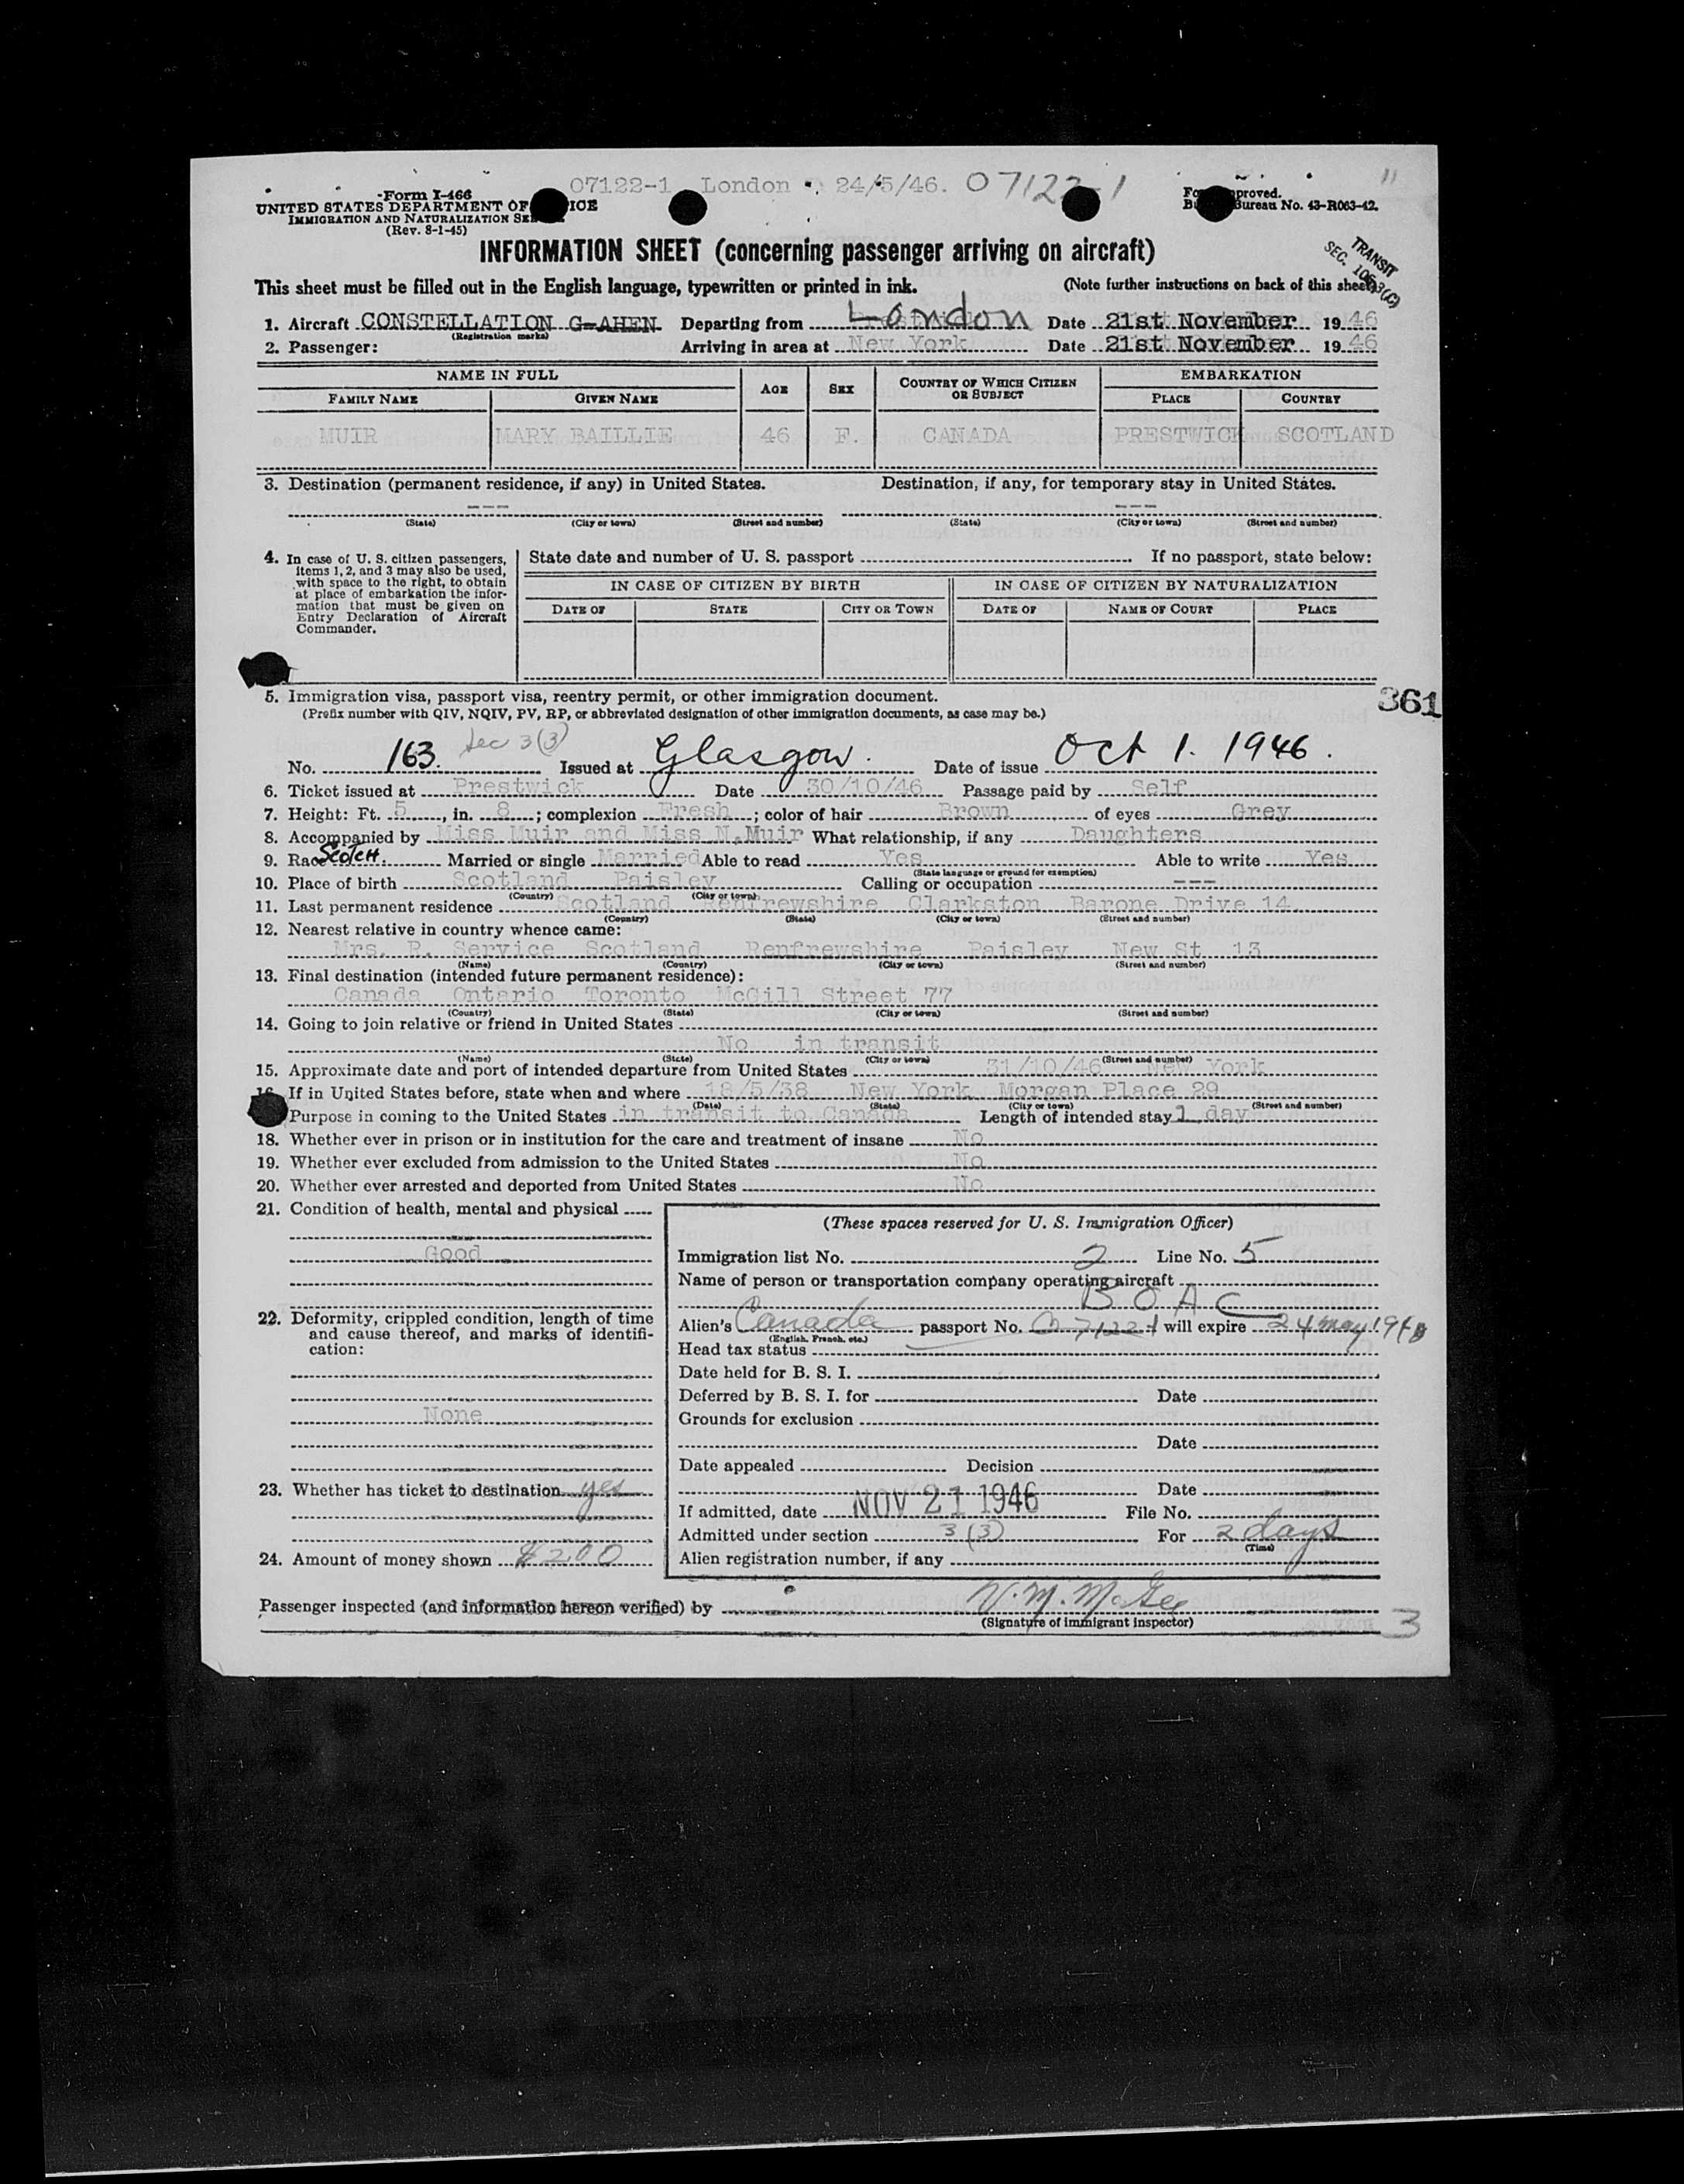 07122-1 London 24/5/46. 07122-1
Form I-466
UNITED STATES DEPARTMENT OF
IMMIGRATION AND NATURALIZATION
(Rev. 8-1-45)
Bureau No. 43-R063-42.
INFORMATION SHEET (concerning passenger arriving on aircraft)
TRANSIT
SEC.
This sheet must be filled out in the English language, typewritten or printed in ink. (Note further instructions on back of this sheet)
1. Aircraft CONSTELLATION G-AHEN Departing from London Date 21st November 1946
(Registration marks)
2. Passenger: Arriving in area at New York Date 21st November 1946
NAME IN FULL AGE SEX COUNTRY OF WHICH CITIZEN OR SUBJECT EMBARKATION
FAMILY NAME GIVEN NAME PLACE COUNTRY
MUIR MARY BAILLIE 46 F. CANADA PRESTWICK SCOTLAND
3. Destination (permanent residence, if any) in United States. Destination, if any, for temporary stay in United States.
--- ---
(State) (City or town) (Street and number) (State) (City or town) (Street and number)
4. In case of U. S. citizen passengers, items 1, 2, and 3 may also be used, with space to the right, to obtain at place of embarkation the information that must be given on Entry Declaration of Aircraft Commander.
State date and number of U. S. passport If no passport, state below:
IN CASE OF CITIZEN BY BIRTH IN CASE OF CITIZEN BY NATURALIZATION
DATE OF STATE CITY OR TOWN DATE OF NAME OF COURT PLACE
5. Immigration visa, passport visa, reentry permit, or other immigration document.
361
(Prefix number with QIV, NQIV, PV, RP, or abbreviated designation of other immigration documents, as case may be.)
No. 163. Sec 3(3) Issued at Glasgow. Date of issue Oct 1. 1946.
6. Ticket issued at Prestwick Date 30/10/46 Passage paid by Self
7. Height: Ft. 5, in. 8; complexion Fresh; color of hair Brown of eyes Grey
8. Accompanied by Miss Muir and Miss N.Muir What relationship, if any Daughters
9. Race SCOTCH. Married or single Married Able to read Yes Able to write Yes
(State language or ground for exemption)
10. Place of birth Scotland Paisley Calling or occupation ---
(Country) (City or town)
11. Last permanent residence Scotland Renfrewshire Clarkston Barone Drive 14
(Country) (State) (City or town) (Street and number)
12. Nearest relative in country whence came:
Mrs. R. Service Scotland Renfrewshire Paisley New St 13
(Name) (Country) (City or town) (Street and number)
13. Final destination (intended future permanent residence):
Canada Ontario Toronto McGill Street 77
(Country) (State) (City or town) (Street and number)
14. Going to join relative or friend in United States
No in transit
(Name) (State) (City or town) (Street and number)
15. Approximate date and port of intended departure from United States 31/10/46 New York
16. If in United States before, state when and where 18/5/38 New York Morgan Place 29
(Date) (State) (City or town) (Street and number)
Purpose in coming to the United States in transit to Canada Length of intended stay 1 day
18. Whether ever in prison or in institution for the care and treatment of insane No
19. Whether ever excluded from admission to the United States No
20. Whether ever arrested and deported from United States No
21. Condition of health, mental and physical
Good
22. Deformity, crippled condition, length of time and cause thereof, and marks of identification:
None
23. Whether has ticket to destination yes
24. Amount of money shown $200
(These spaces reserved for U. S. Immigration Officer)
Immigration list No. 2 Line No. 5
Name of person or transportation company operating aircraft
BOAC
Alien's Canada passport No. 07122-1 will expire 24 May 1948
(English, French, etc.)
Head tax status
Date held for B. S. I.
Deferred by B. S. I. for Date
Grounds for exclusion
Date
Date appealed Decision
Date
If admitted, date NOV 21 1946 File No.
Admitted under section 3(3) For 2 days
(Time)
Alien registration number, if any
Passenger inspected (and information hereon verified) by V. M. McGee
(Signature of immigrant inspector)
3